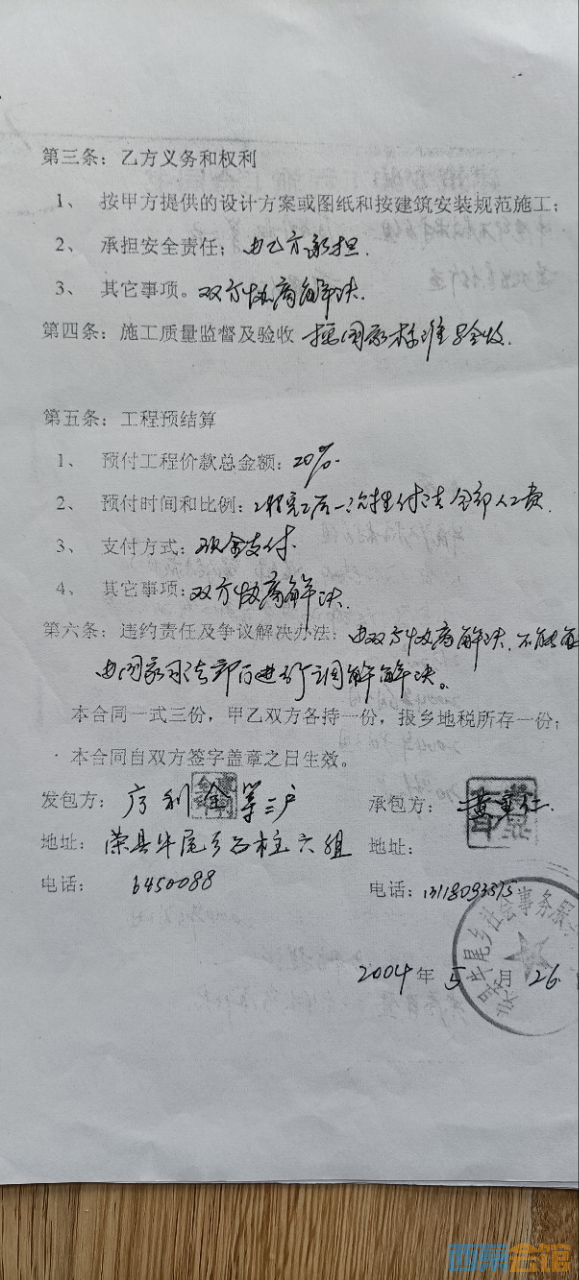 第三条：乙方义务和权利
1、 按甲方提供的设计方案或图纸和按建筑安装规范施工；
2、 承担安全责任；由乙方承担.
3、 其它事项。双方协商解决.
第四条：施工质量监督及验收 按国家标准验收.
第五条：工程预结算
1、 预付工程价款总金额：20%.
2、 预付时间和比例：工程完工后一次性付清全部人工费.
3、 支付方式：现金支付.
4、 其它事项：双方协商解决.
第六条：违约责任及争议解决办法：由双方协商解决.不能
由国家司法部门进行调解解决。
本合同一式三份，甲乙双方各持一份，报乡地税所存一份；
本合同自双方签字盖章之日生效。
发包方： 利金等三户 承包方：
地址：荣县牛尾乡石柱六组 地址：
电话： 6450088 电话：
2004年5月26
牛尾乡社会事务服
西部会馆